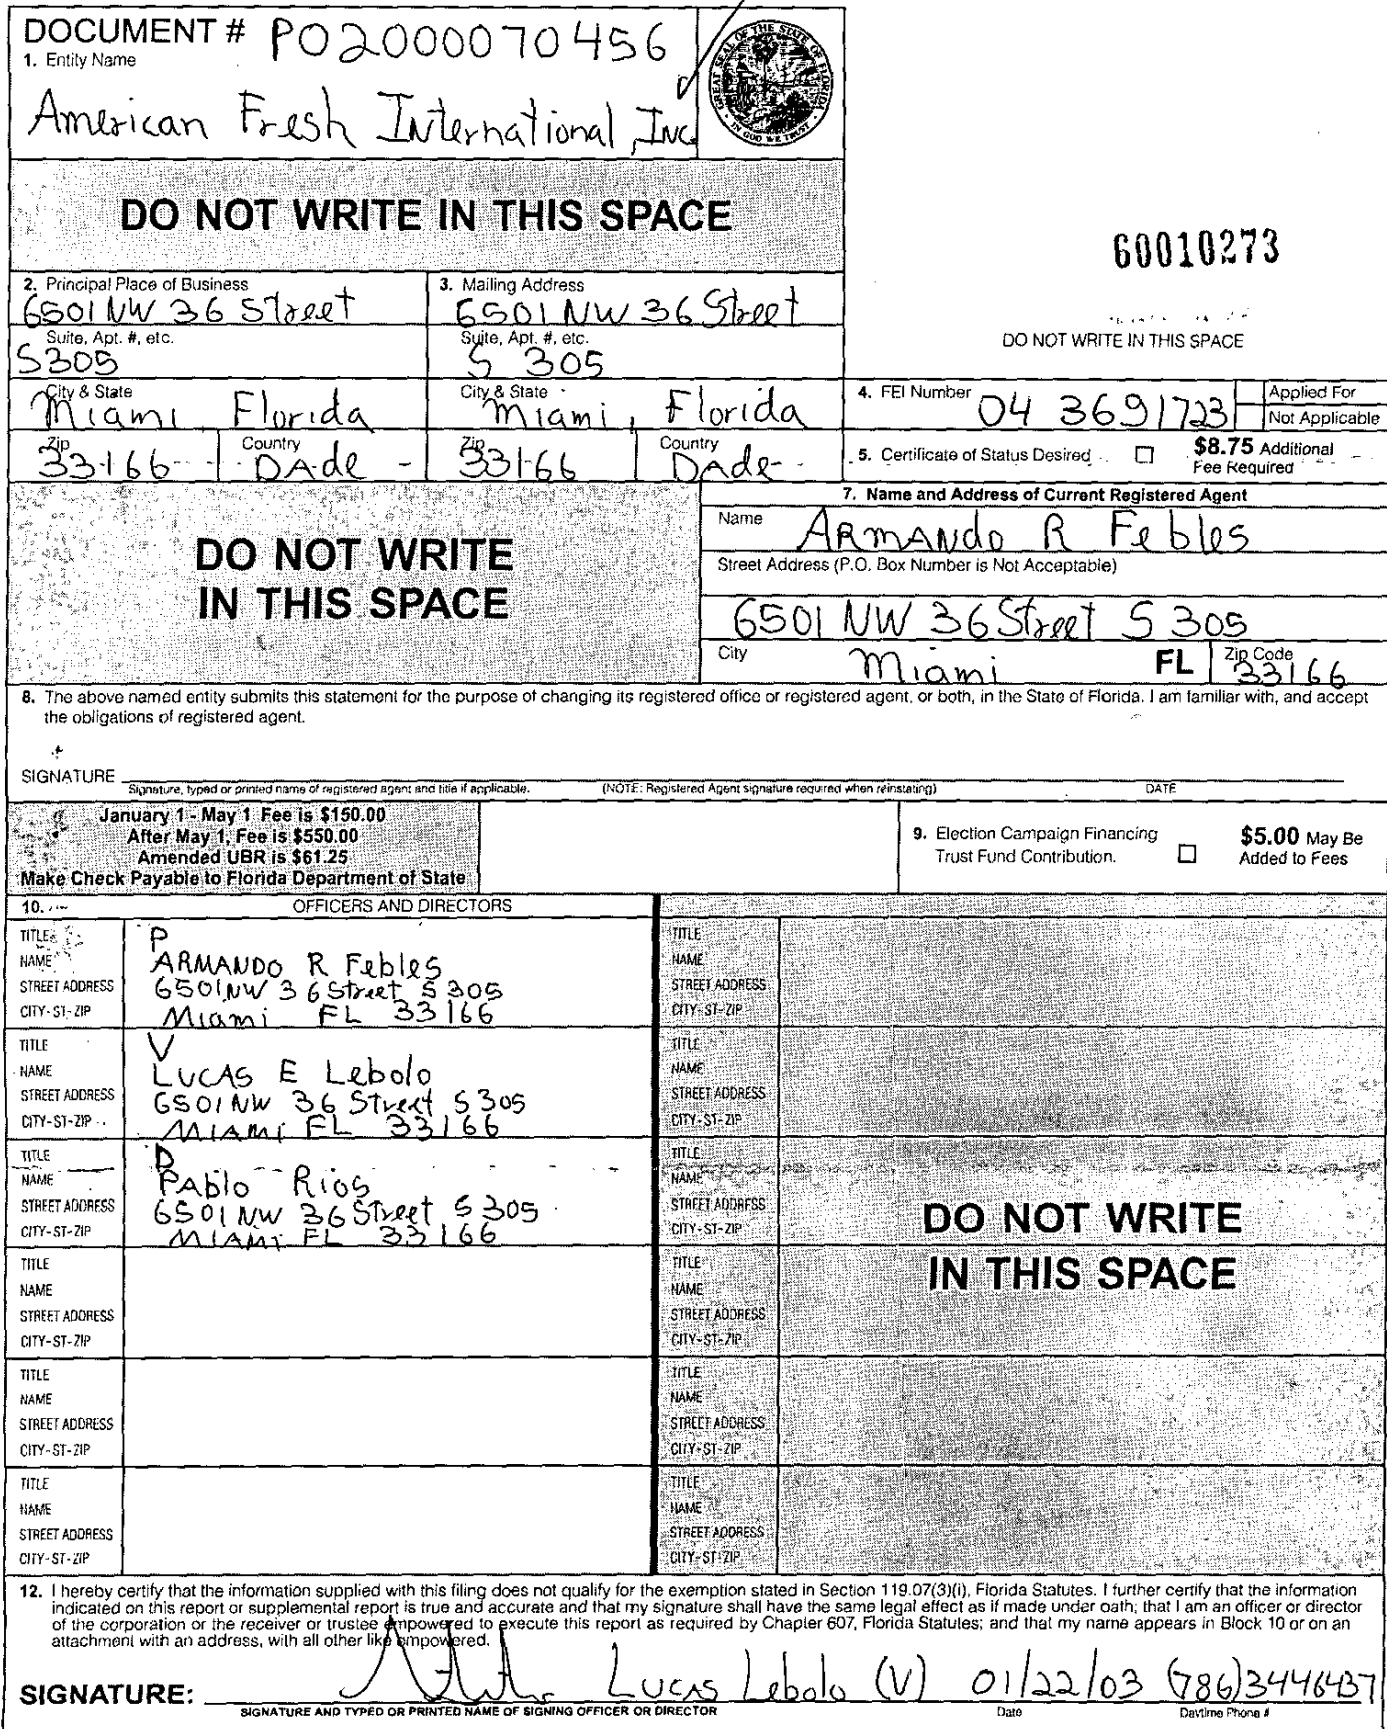 DOCUMENT # P02000070456
1. Entity Name
American Fresh International, Inc.
GREAT SEAL OF THE STATE OF FLORIDA
IN GOD WE TRUST
DO NOT WRITE IN THIS SPACE
60010273
DO NOT WRITE IN THIS SPACE
2. Principal Place of Business
6501 NW 36 Street
3. Mailing Address
6501 NW 36 Street
Suite, Apt. #, etc.
S305
Suite, Apt. #, etc.
S 305
City & State
Miami, Florida
City & State
Miami, Florida
4. FEI Number
04 3691723
Applied For
Not Applicable
Zip
33166
Country
DAde
Zip
33166
Country
DAde
5. Certificate of Status Desired
$8.75 Additional
Fee Required
DO NOT WRITE
IN THIS SPACE
7. Name and Address of Current Registered Agent
Name
ARMANdo R Febles
Street Address (P.O. Box Number is Not Acceptable)
6501 NW 36 Street S 305
City
Miami
FL
Zip Code
33166
8. The above named entity submits this statement for the purpose of changing its registered office or registered agent, or both, in the State of Florida. I am familiar with, and accept
the obligations of registered agent.
SIGNATURE
Signature, typed or printed name of registered agent and title if applicable.
(NOTE: Registered Agent signature required when reinstating)
DATE
January 1 - May 1 Fee is $150.00
After May 1, Fee is $550.00
Amended UBR is $61.25
Make Check Payable to Florida Department of State
9. Election Campaign Financing
Trust Fund Contribution.
$5.00 May Be
Added to Fees
10.
OFFICERS AND DIRECTORS
TITLE
P
NAME
ARMANDO R Febles
STREET ADDRESS
6501 NW 36 Street S 305
CITY-ST-ZIP
Miami FL 33166
TITLE
NAME
STREET ADDRESS
CITY-ST-ZIP
TITLE
V
NAME
LUCAS E Lebolo
STREET ADDRESS
6501 NW 36 Street S 305
CITY-ST-ZIP
MIAMi FL 33166
TITLE
NAME
STREET ADDRESS
CITY-ST-ZIP
TITLE
D
NAME
PAblo Rios
STREET ADDRESS
6501 NW 36 Street S 305
CITY-ST-ZIP
MIAMi FL 33166
TITLE
NAME
STREET ADDRESS
CITY-ST-ZIP
DO NOT WRITE
IN THIS SPACE
TITLE
NAME
STREET ADDRESS
CITY-ST-ZIP
TITLE
NAME
STREET ADDRESS
CITY-ST-ZIP
TITLE
NAME
STREET ADDRESS
CITY-ST-ZIP
TITLE
NAME
STREET ADDRESS
CITY-ST-ZIP
TITLE
NAME
STREET ADDRESS
CITY-ST-ZIP
TITLE
NAME
STREET ADDRESS
CITY-ST-ZIP
12. I hereby certify that the information supplied with this filing does not qualify for the exemption stated in Section 119.07(3)(i), Florida Statutes. I further certify that the information
indicated on this report or supplemental report is true and accurate and that my signature shall have the same legal effect as if made under oath; that I am an officer or director
of the corporation or the receiver or trustee empowered to execute this report as required by Chapter 607, Florida Statutes; and that my name appears in Block 10 or on an
attachment with an address, with all other like empowered.
SIGNATURE:
Lucas Lebolo (V) 01/22/03 (786)3446437
SIGNATURE AND TYPED OR PRINTED NAME OF SIGNING OFFICER OR DIRECTOR
Date
Daytime Phone #